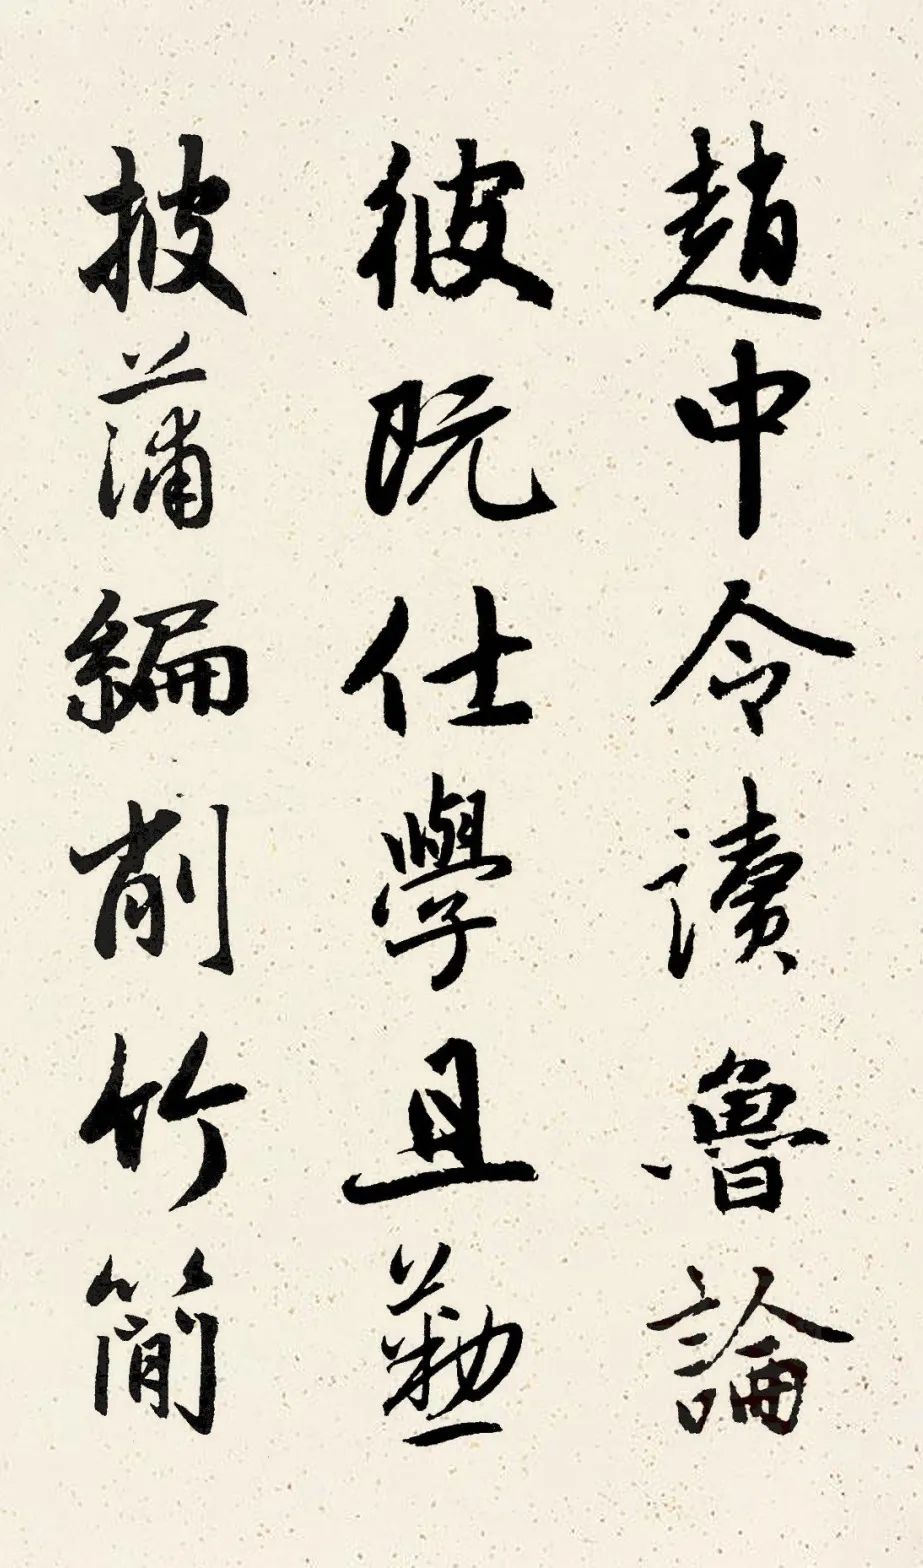 趙中令讀魯論
彼既仕學且勤
披蒲編削竹簡